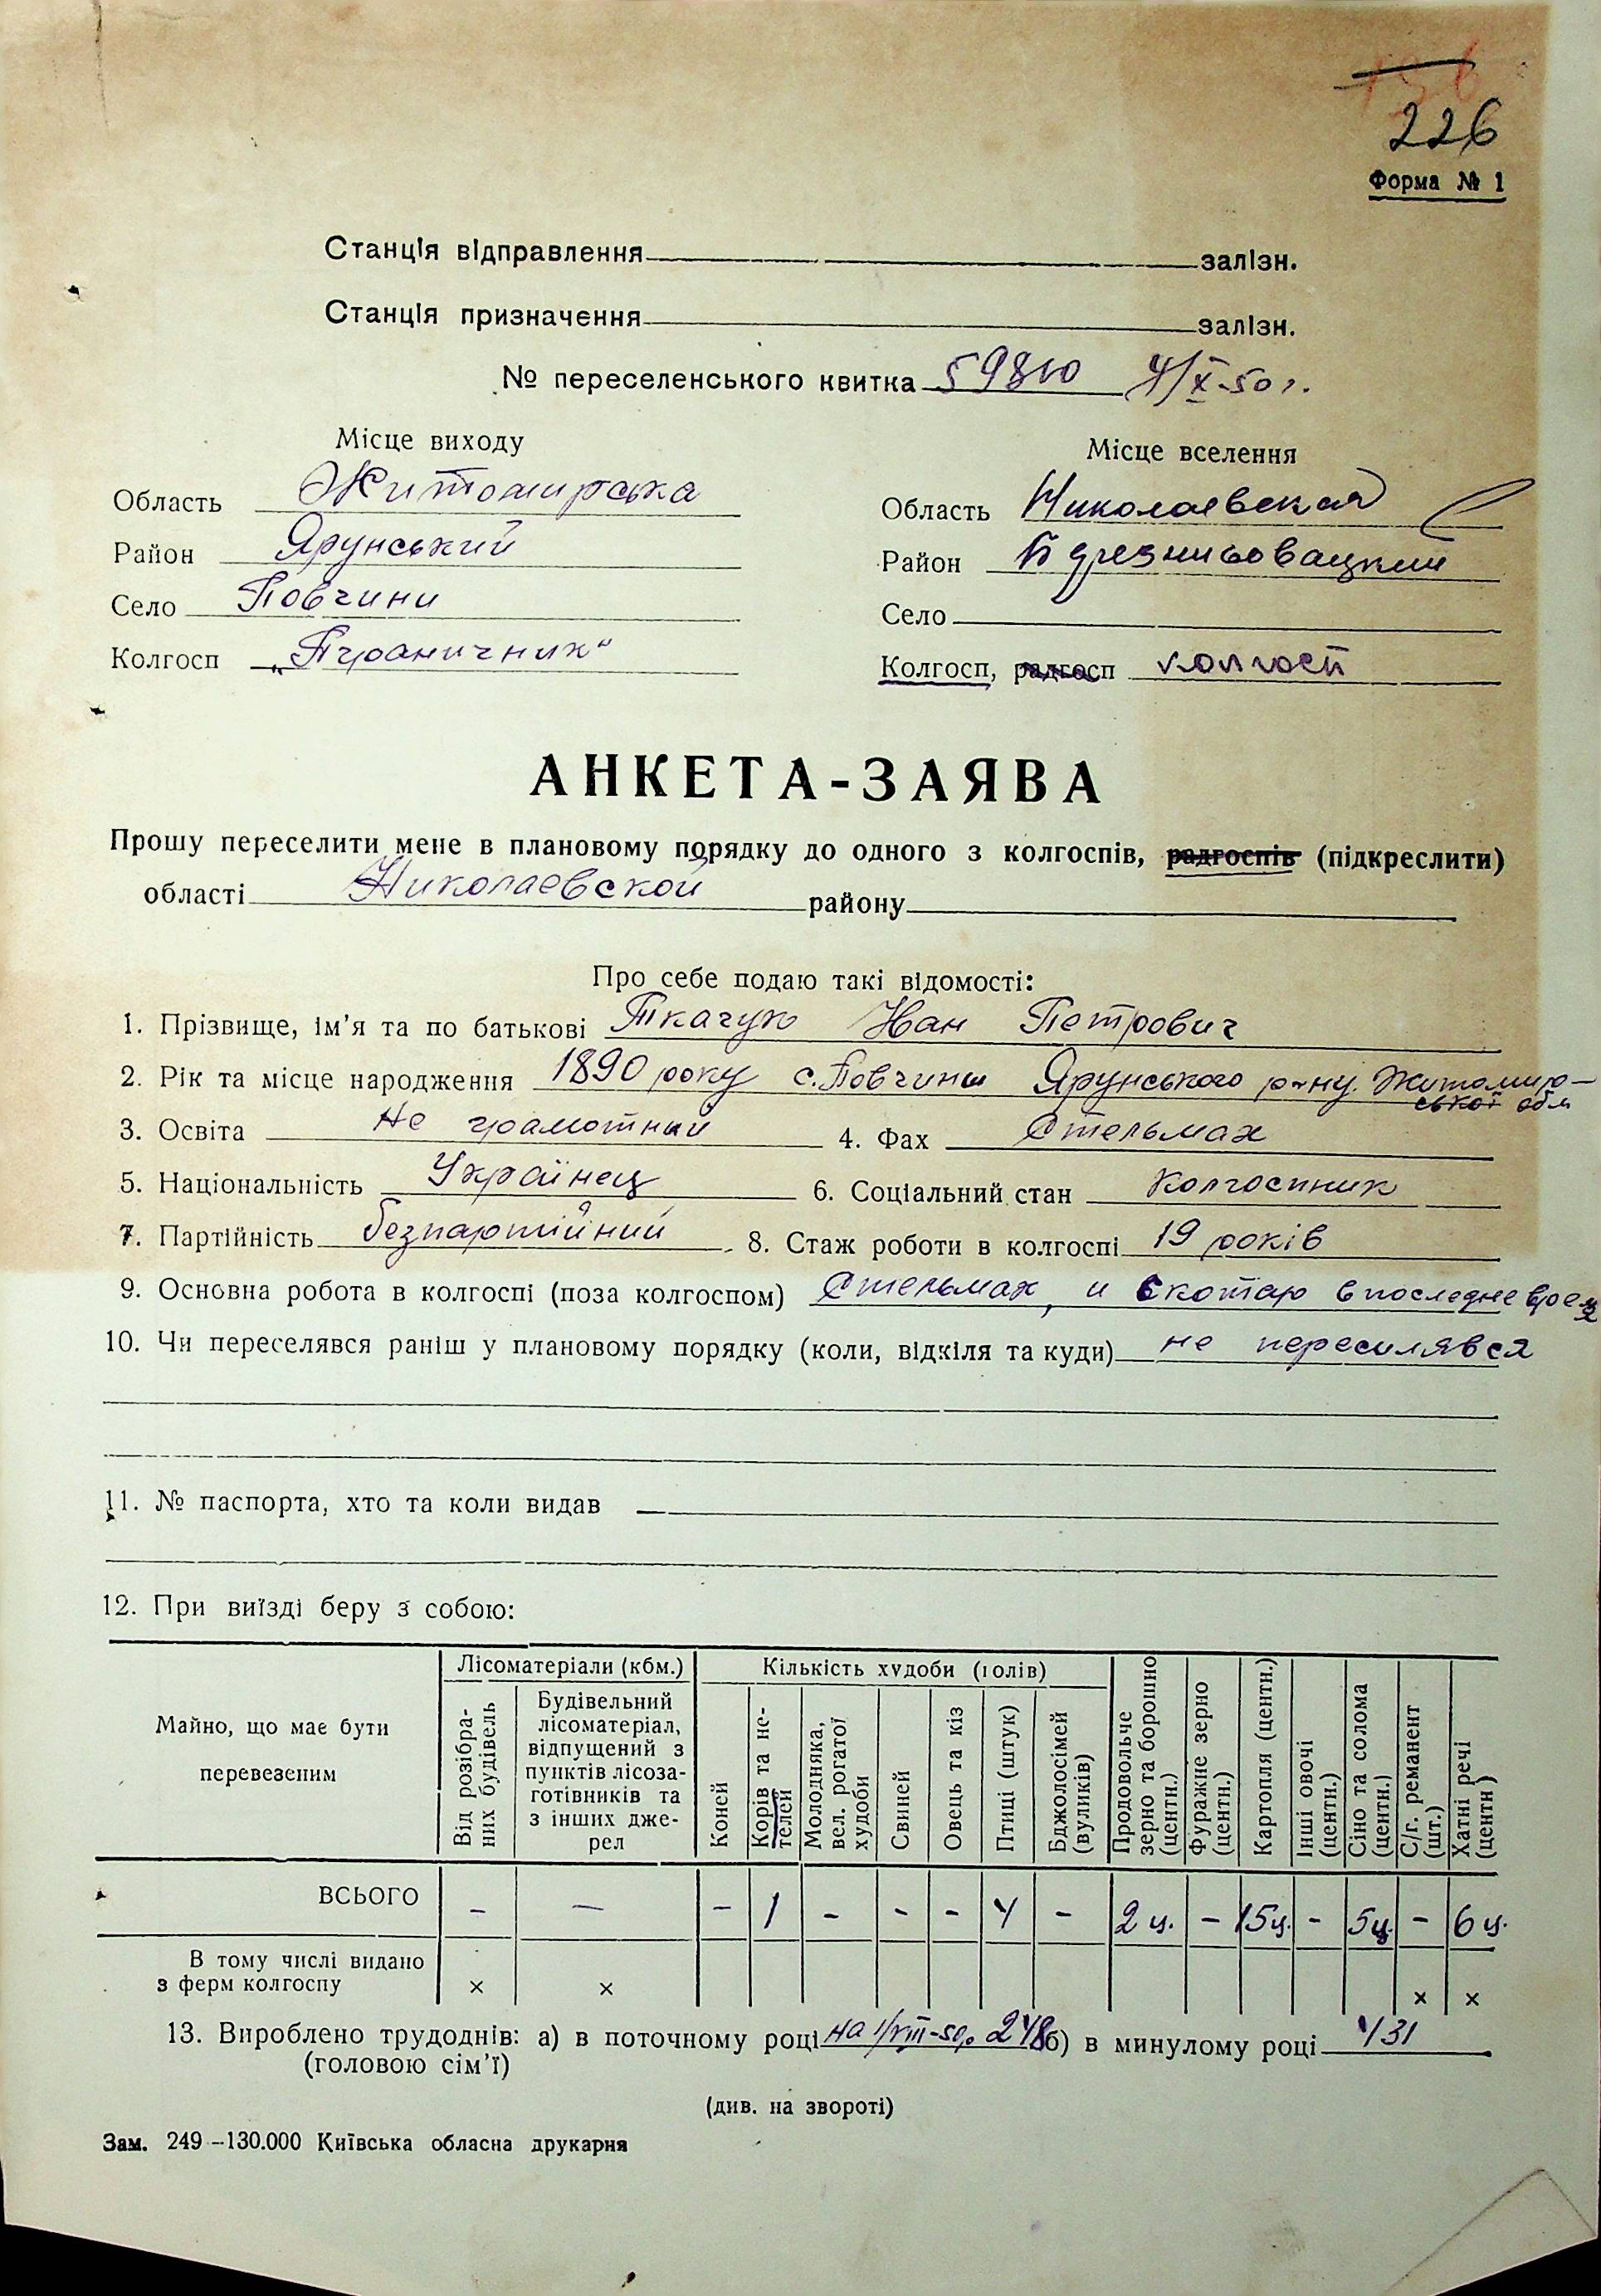 226
Форма № 1
Станція відправлення залізн.
Станція призначення залізн.
№ переселенського квитка 59810 4/X-50 г.
Місце виходу
Область Житомирська
Район Ярунський
Село Повчини
Колгосп „Пграничник“
Місце вселення
Область Николаевская
Район
Село
Колгосп, радгосп колгосп
АНКЕТА-ЗАЯВА
Прошу переселити мене в плановому порядку до одного з колгоспів, радгоспів (підкреслити)
області Николаевской району
Про себе подаю такі відомості:
1. Прізвище, ім’я та по батькові Ткачук Иван Петрович
2. Рік та місце народження 1890 року с. Повчини Ярунського р-ну. Житомир-
ської обл
3. Освіта Не грамотный 4. Фах Стельмах
5. Національність Українец 6. Соціальний стан Колгоспник
7. Партійність безпартійний 8. Стаж роботи в колгоспі 19 років
9. Основна робота в колгоспі (поза колгоспом) Стельмах, и скотар в последне время
10. Чи переселявся раніш у плановому порядку (коли, відкіля та куди) не переселявся
11. № паспорта, хто та коли видав
12. При виїзді беру з собою:
Майно, що має бути перевезеним
Лісоматеріали (кбм.)
Від розібраних будівель
Будівельний лісоматеріал, відпущений з пунктів лісозаготівників та з інших джерел
Кількість худоби (голів)
Коней
Корів та нетелей
Молодняка, вел. рогатої худоби
Свиней
Овець та кіз
Птиці (штук)
Бджолосімей (вуликів)
Продовольче зерно та борошно (центн.)
Фуражне зерно (центн.)
Картопля (центн.)
Інші овочі (центн.)
Сіно та солома (центн.)
С/г. реманент (шт.)
Хатні речі (центн)
ВСЬОГО - - - 1 - - - 4 - 2 ц. - 15ц. - 5ц. - 6 ц.
В тому числі видано з ферм колгоспу × × × ×
13. Вироблено трудоднів: а) в поточному році на 1/VIII-50р 248 б) в минулому році 431
(головою сім’ї)
(див. на звороті)
Зам. 249–130.000 Київська обласна друкарня